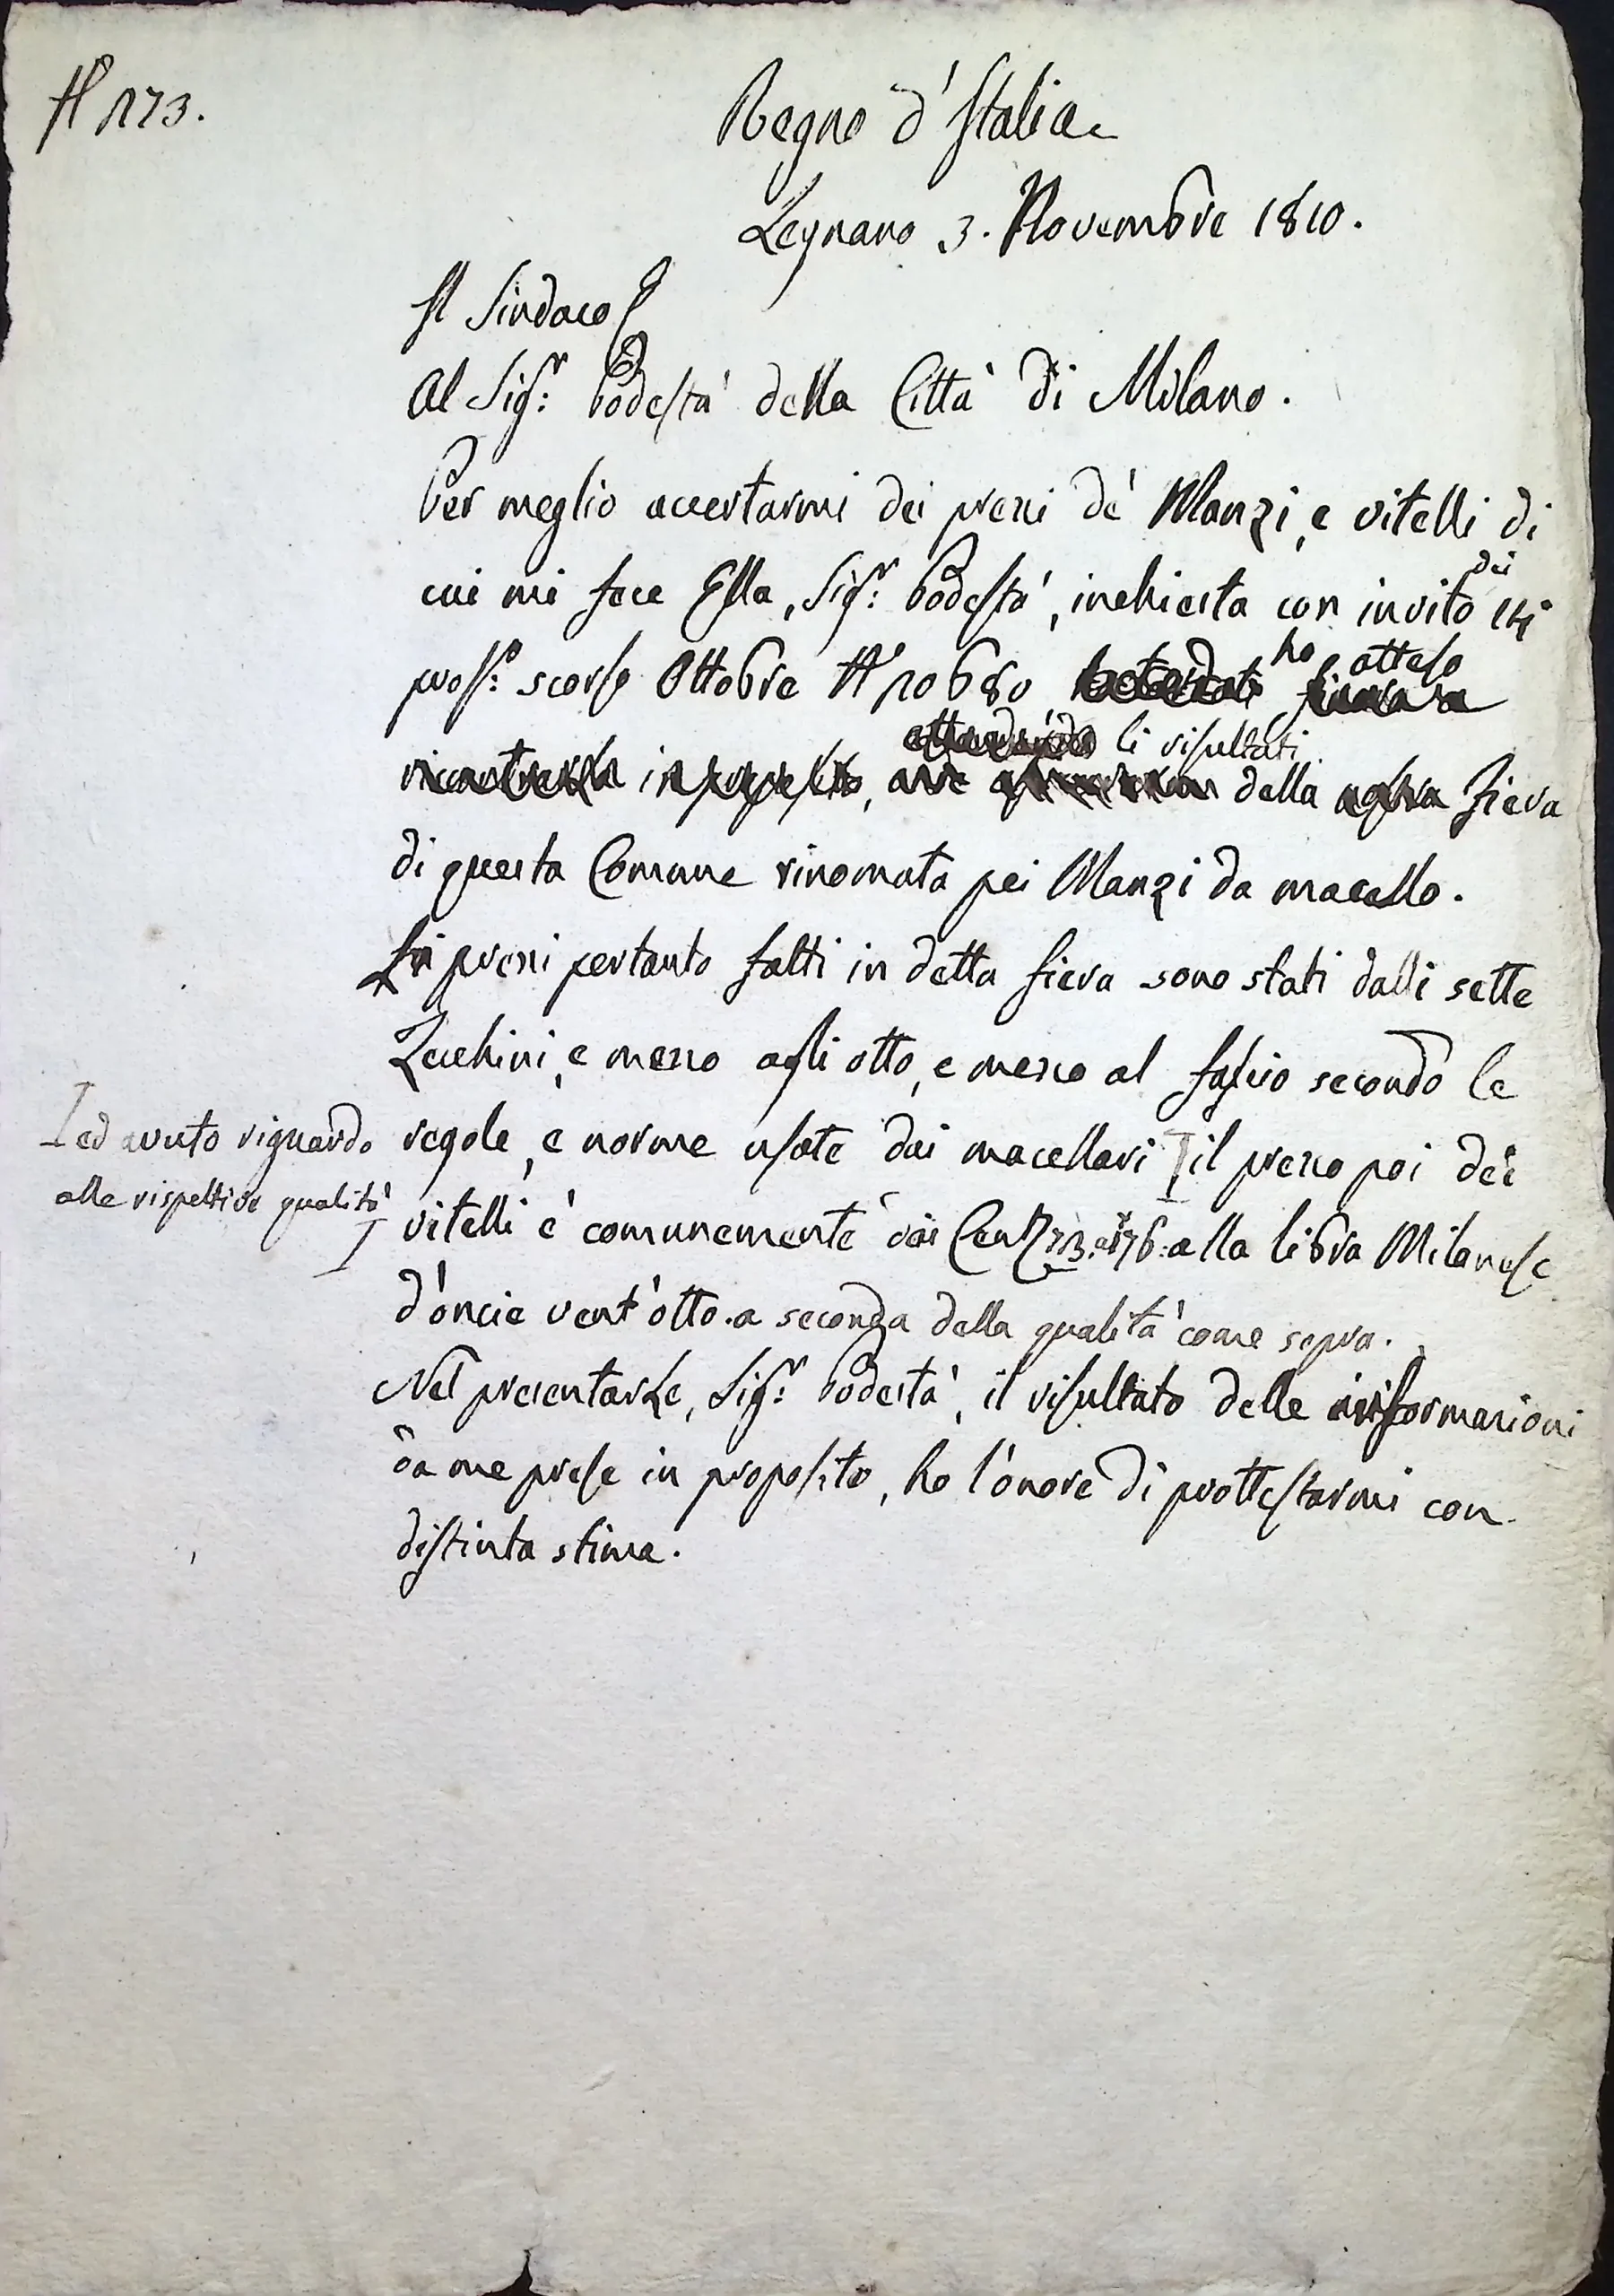 N 173.
Regno d'Italia
Legnano 3. Novembre 1810.
Il Sindaco
Al Sigr: Podestà della Città di Milano.
Per meglio accertarmi dei prezzi de' Manzi, e vitelli di
cui mi fece Ella, Sigr: Podestà, inchiesta con invito dei 14
prosso: scorso Ottobre N 10680 ho atteso
li risultati
della fiera
di questa Comune rinomata pei Manzi da macello.
Li prezzi pertanto fatti in detta fiera sono stati dalli sette
Zecchini, e mezzo agli otto, e mezzo al fascio secondo le
regole, e norme usate dai macellari il prezzo poi dei
ed avuto riguardo
alle rispettive qualità
vitelli è comunemente dai Cent 73. a 76. alla libra Milanese
d'oncie vent'otto. a seconda della qualità come sopra.
Nel presentarLe, Sigr: Podestà, il risultato delle informazioni
da me prese in proposito, ho l'onore di prottestarmi con
distinta stima.